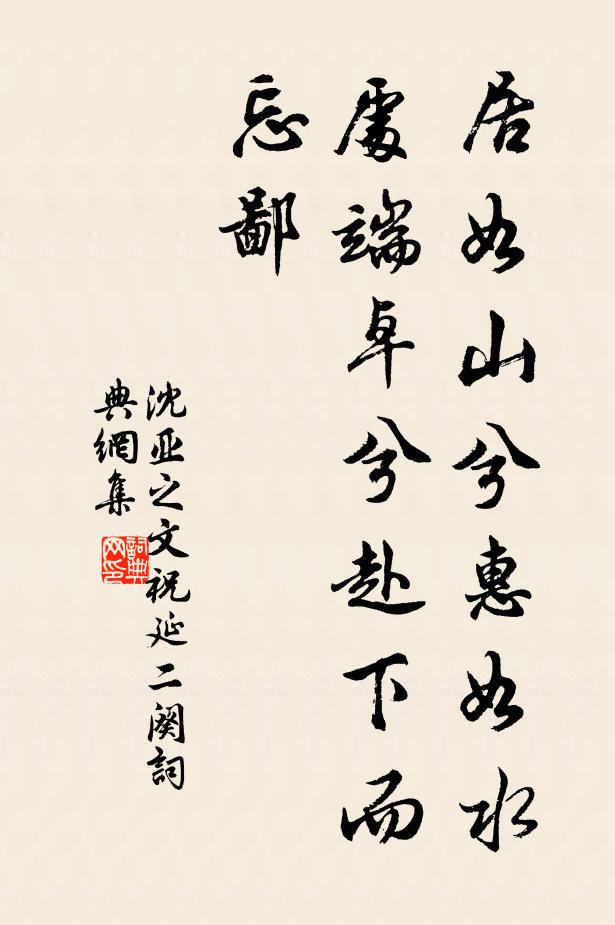 居如山兮惠如水
處端卓兮赴下而
忘鄙
沈亚之文祝延二阕詞
典網集
詞典
网